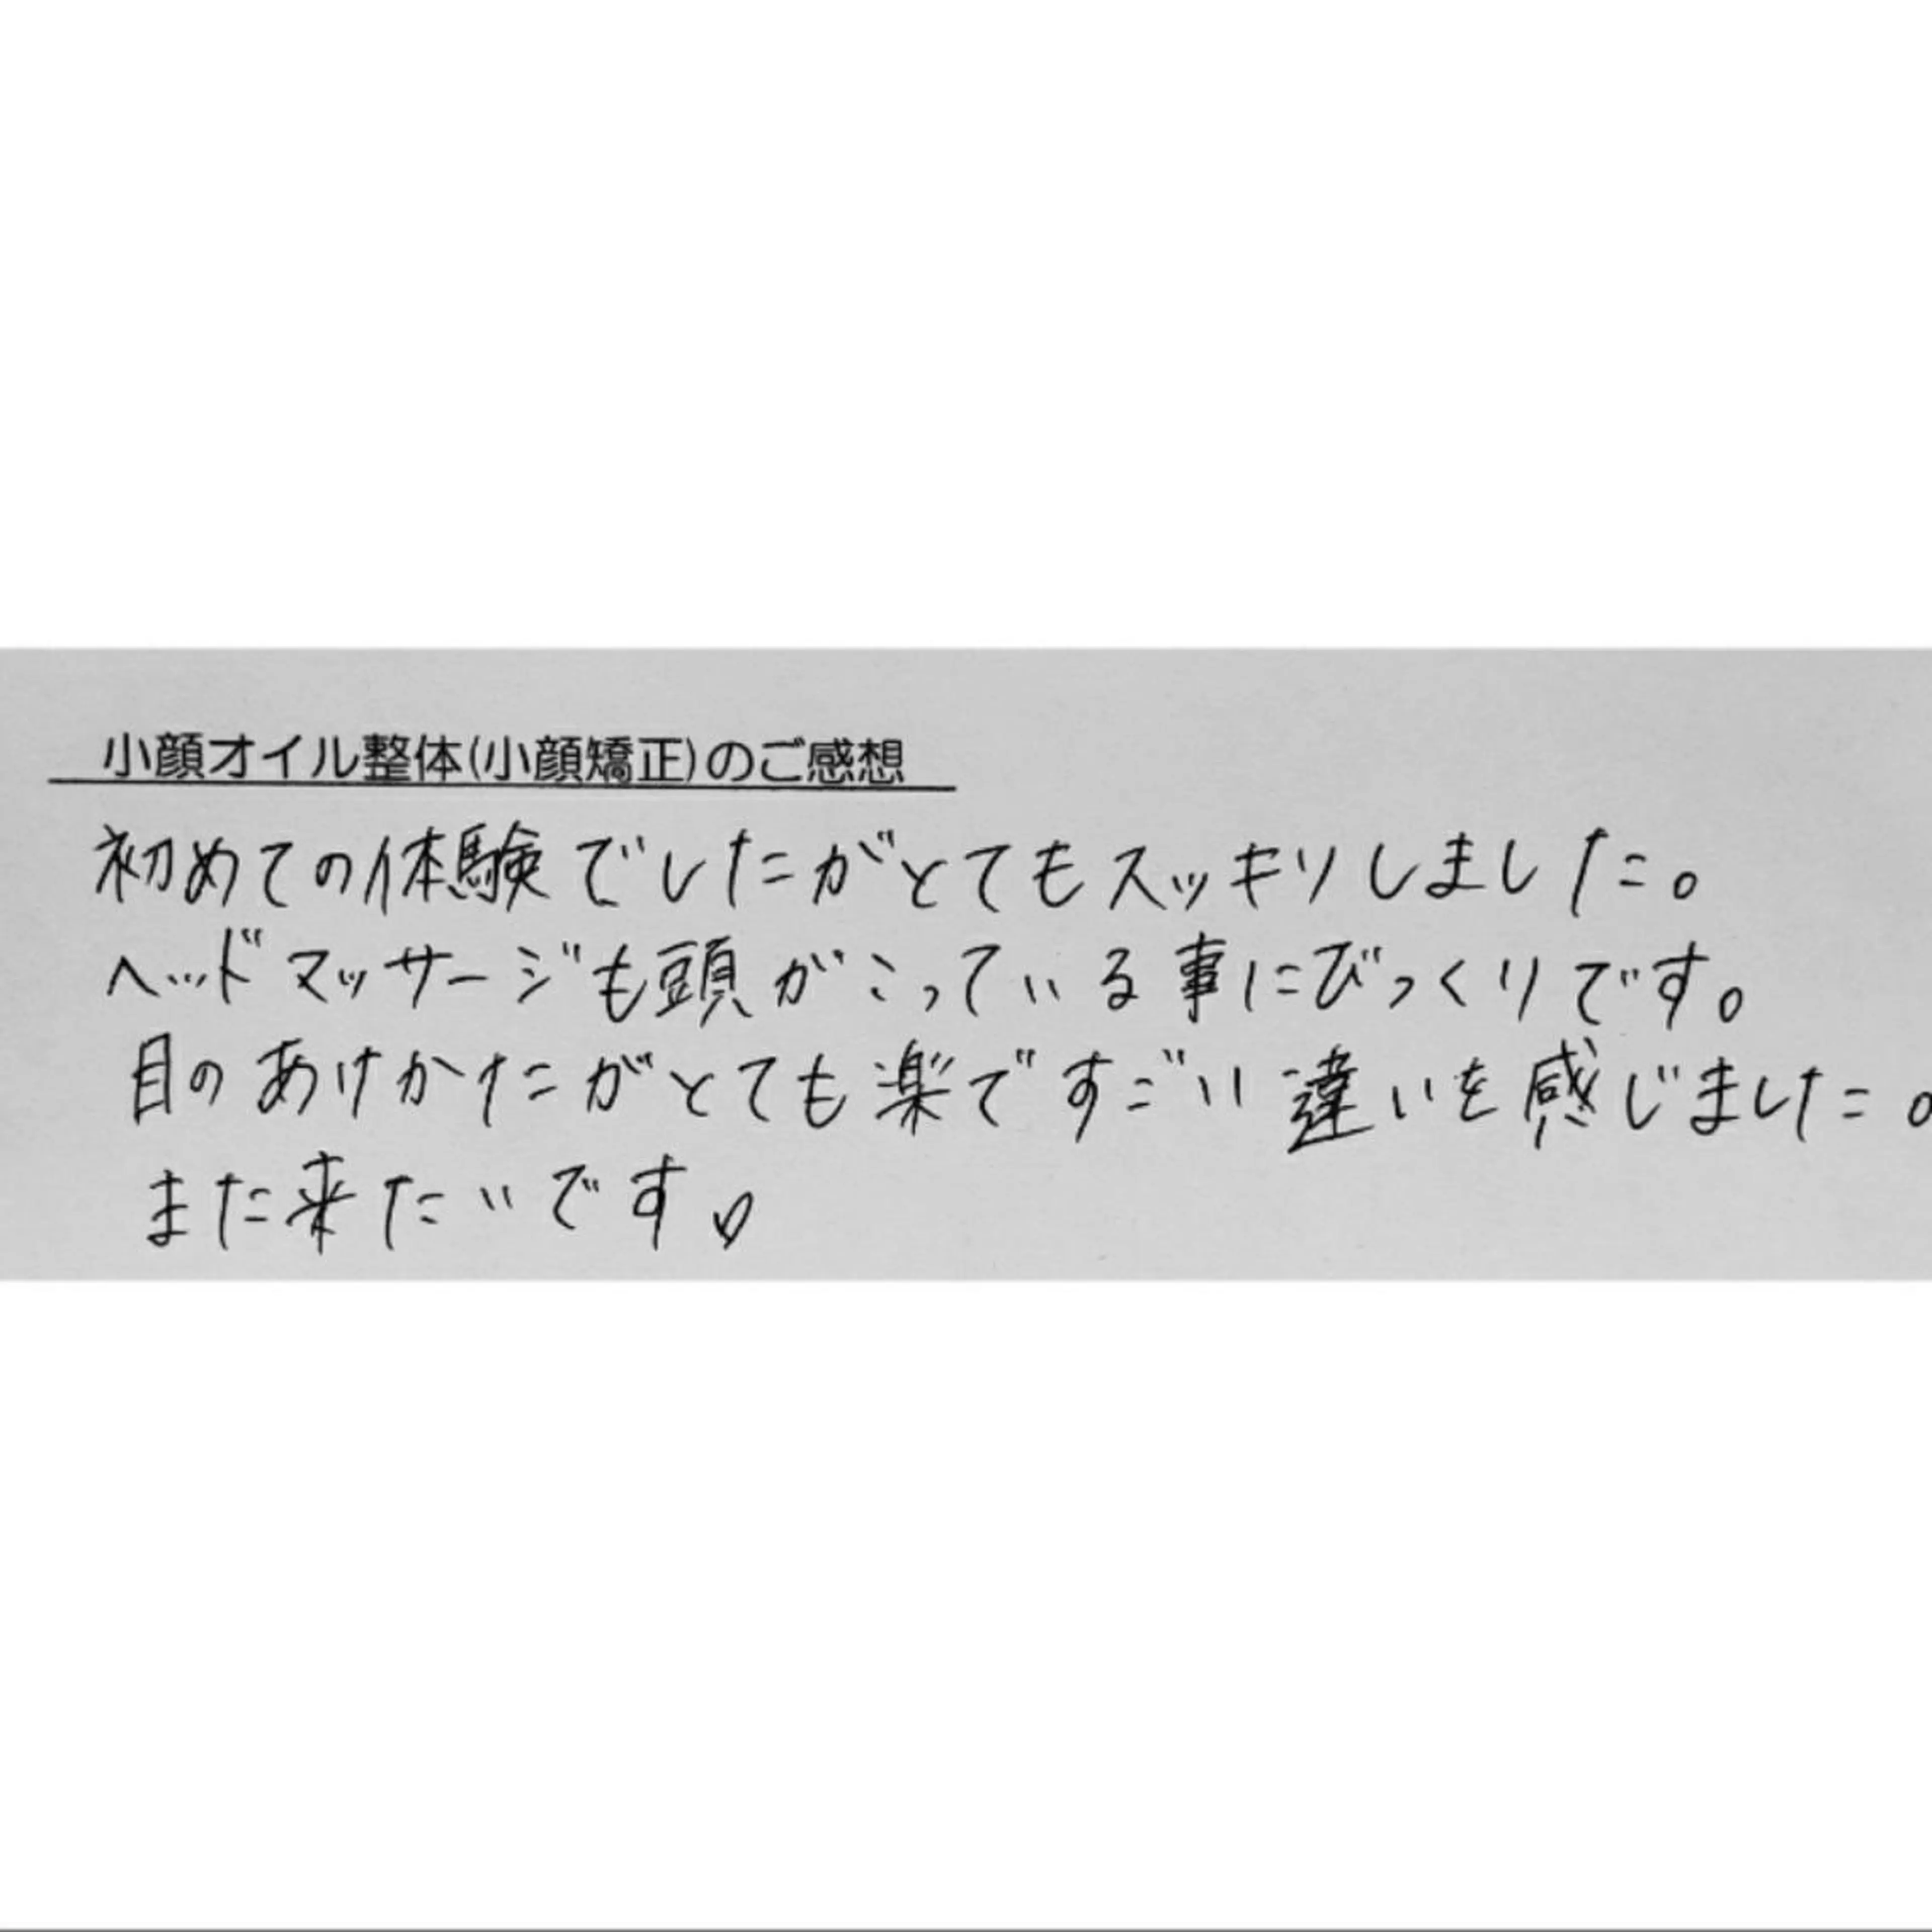 小顔オイル整体(小顔矯正)のご感想
初めての体験でしたがとてもスッキリしました。
ヘッドマッサージも頭がこっている事にびっくりです。
目のあけかたがとても楽ですごい違いを感じました。
また来たいです♡